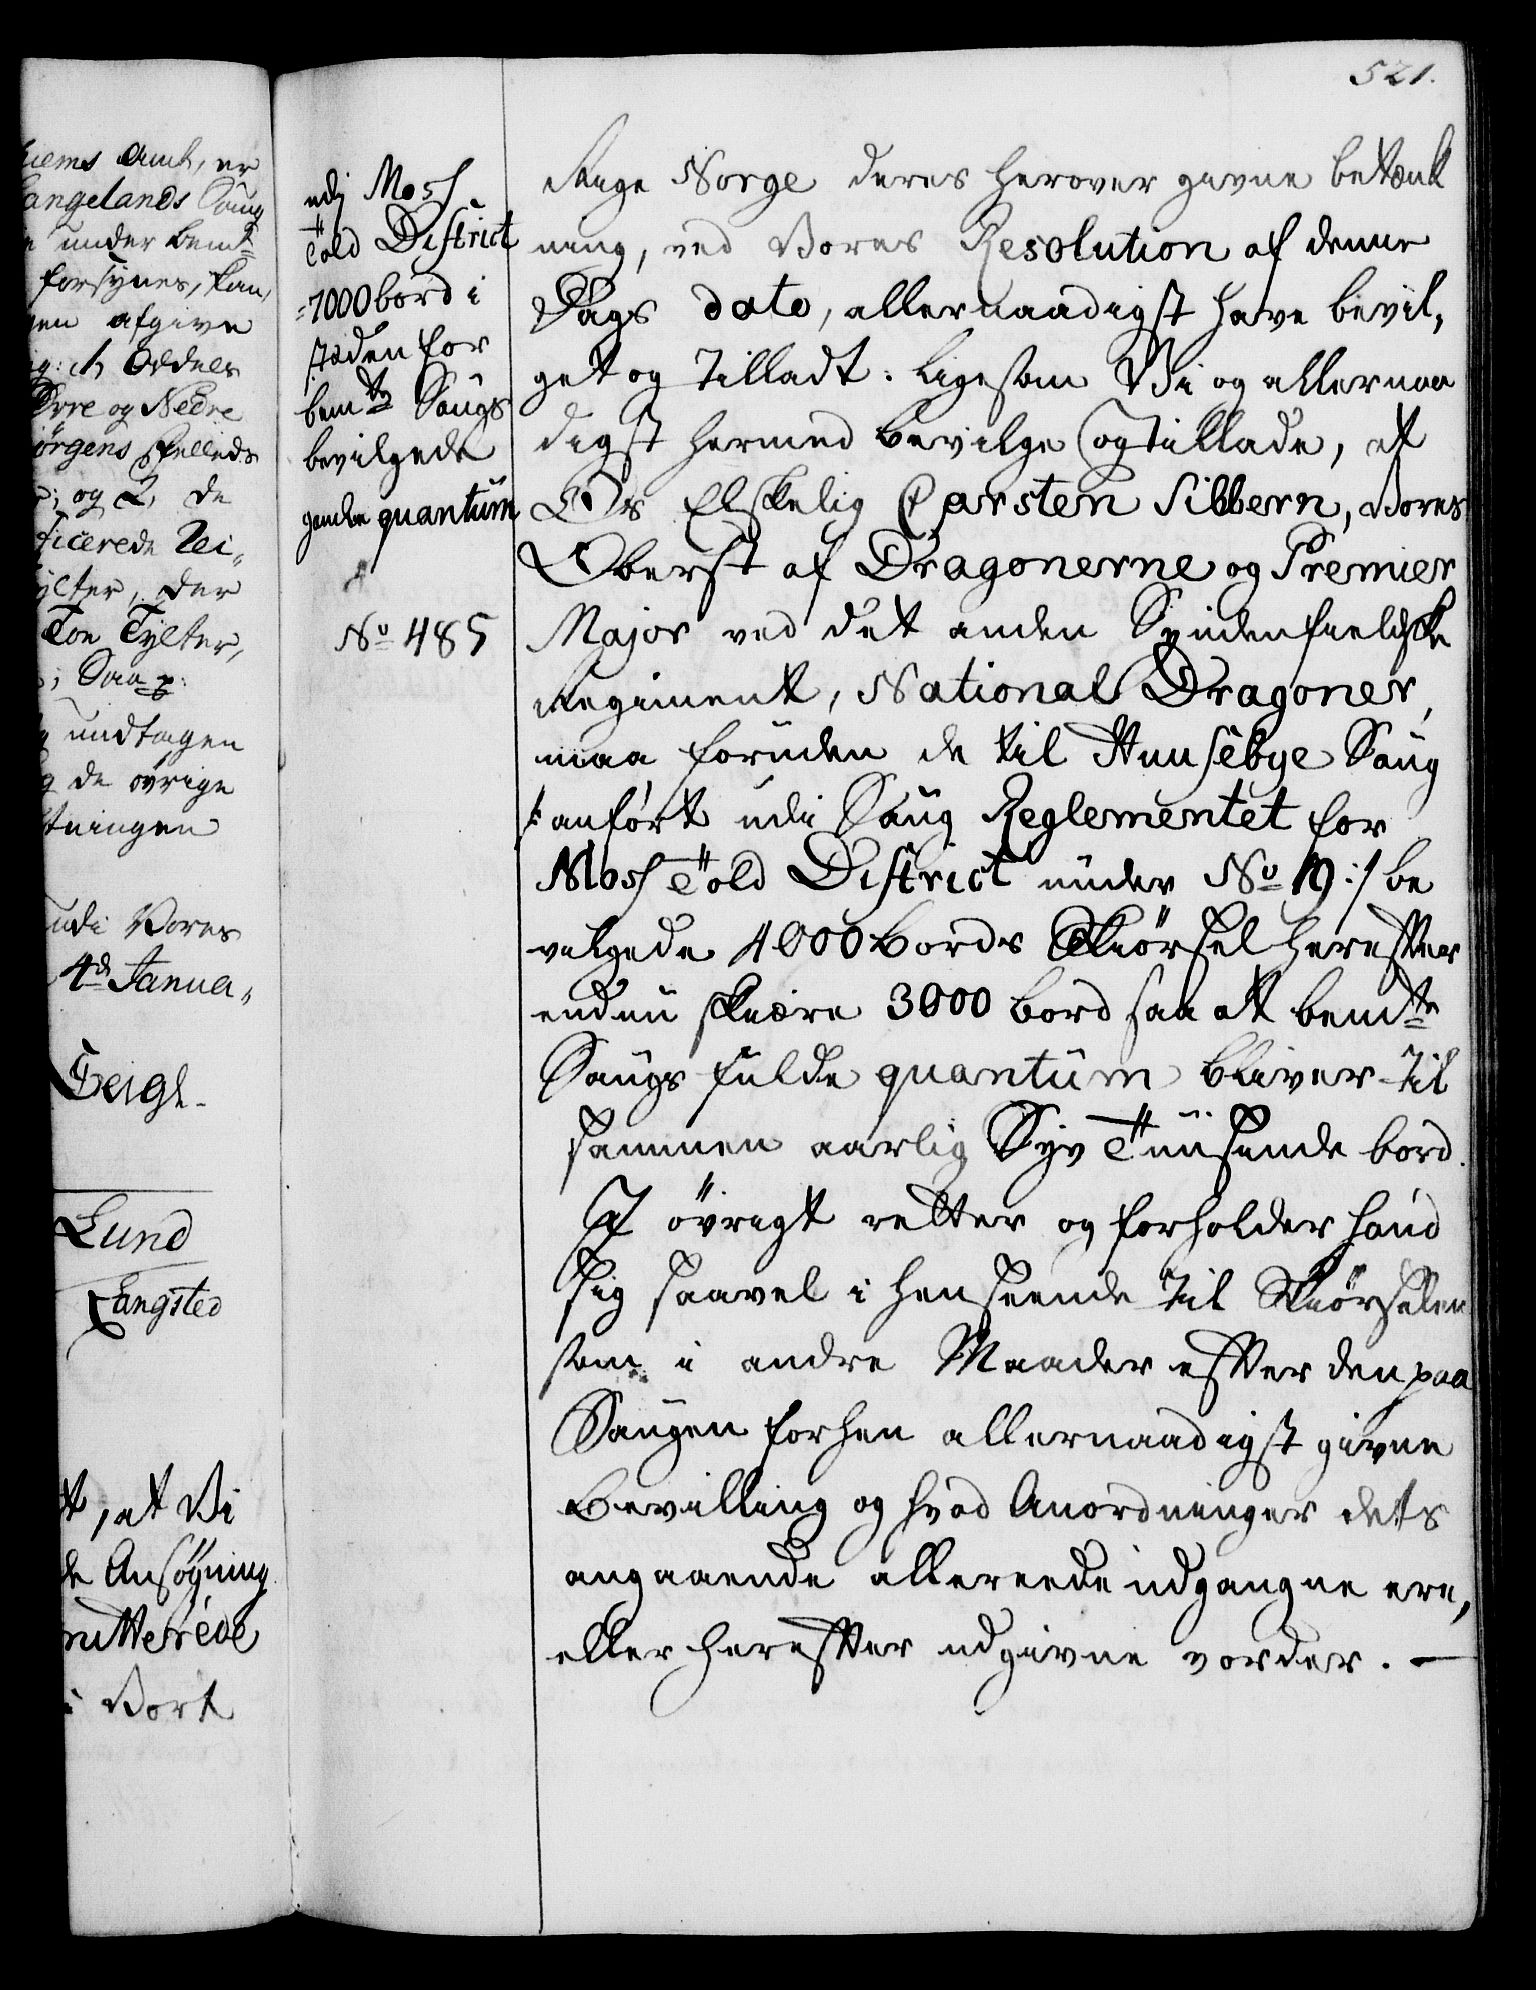 521.
hiems Amt, er
angelands Saug
under bemt
forsynes, kan
gen afgive
Øvre og Nedre
örgens Fælleds
og 2, de
ficerede Lei-
ylter, der
Ton Tylter,
Saa
undtagen
de övrige
tningen
udi Vores
4de Janua-
Teigh
Lund
Langsted
t, at Vi
de Ansøgning
rutterede
i Vort
udj Moss
Told District
7000 bord i
steden for
bemte Saugs
bevilgede
quantum
No 485
Rige Norge deres herover givne betænk
ning, ved Vores Resolution af denne
Dags dato, allernaadigst have bevil,
get og Tilladt: ligesom Vi og allernaa
digst hermed bevilge og tillade, at
Os Elskelig Carsten Sibbern, Vores
Oberst af Dragonerne og Premier
Major ved det andet Syndenfieldske
Regiment, National Dragoner,
maa foruden de til Huusebye Saug
/: anfört udi Saug Reglementet for
Moss Told District under No 19 :/ be
vilgede 4000 bords Skiörsel herefter
endnu skiære 3000 bord saa at bemte
Saugs fulde quantum bliver til
sammen aarlig Syv Tuusende bord.
I övrigt retter og forholder hand
sig saavel i henseende til Skiörselen
som i andre Maader efter den paa
Saugen forhen allernaadigst givne
bevilling og hvad Anordninger dets
angaaende allereede udgangne ere,
eller herefter udgivne vorder. —